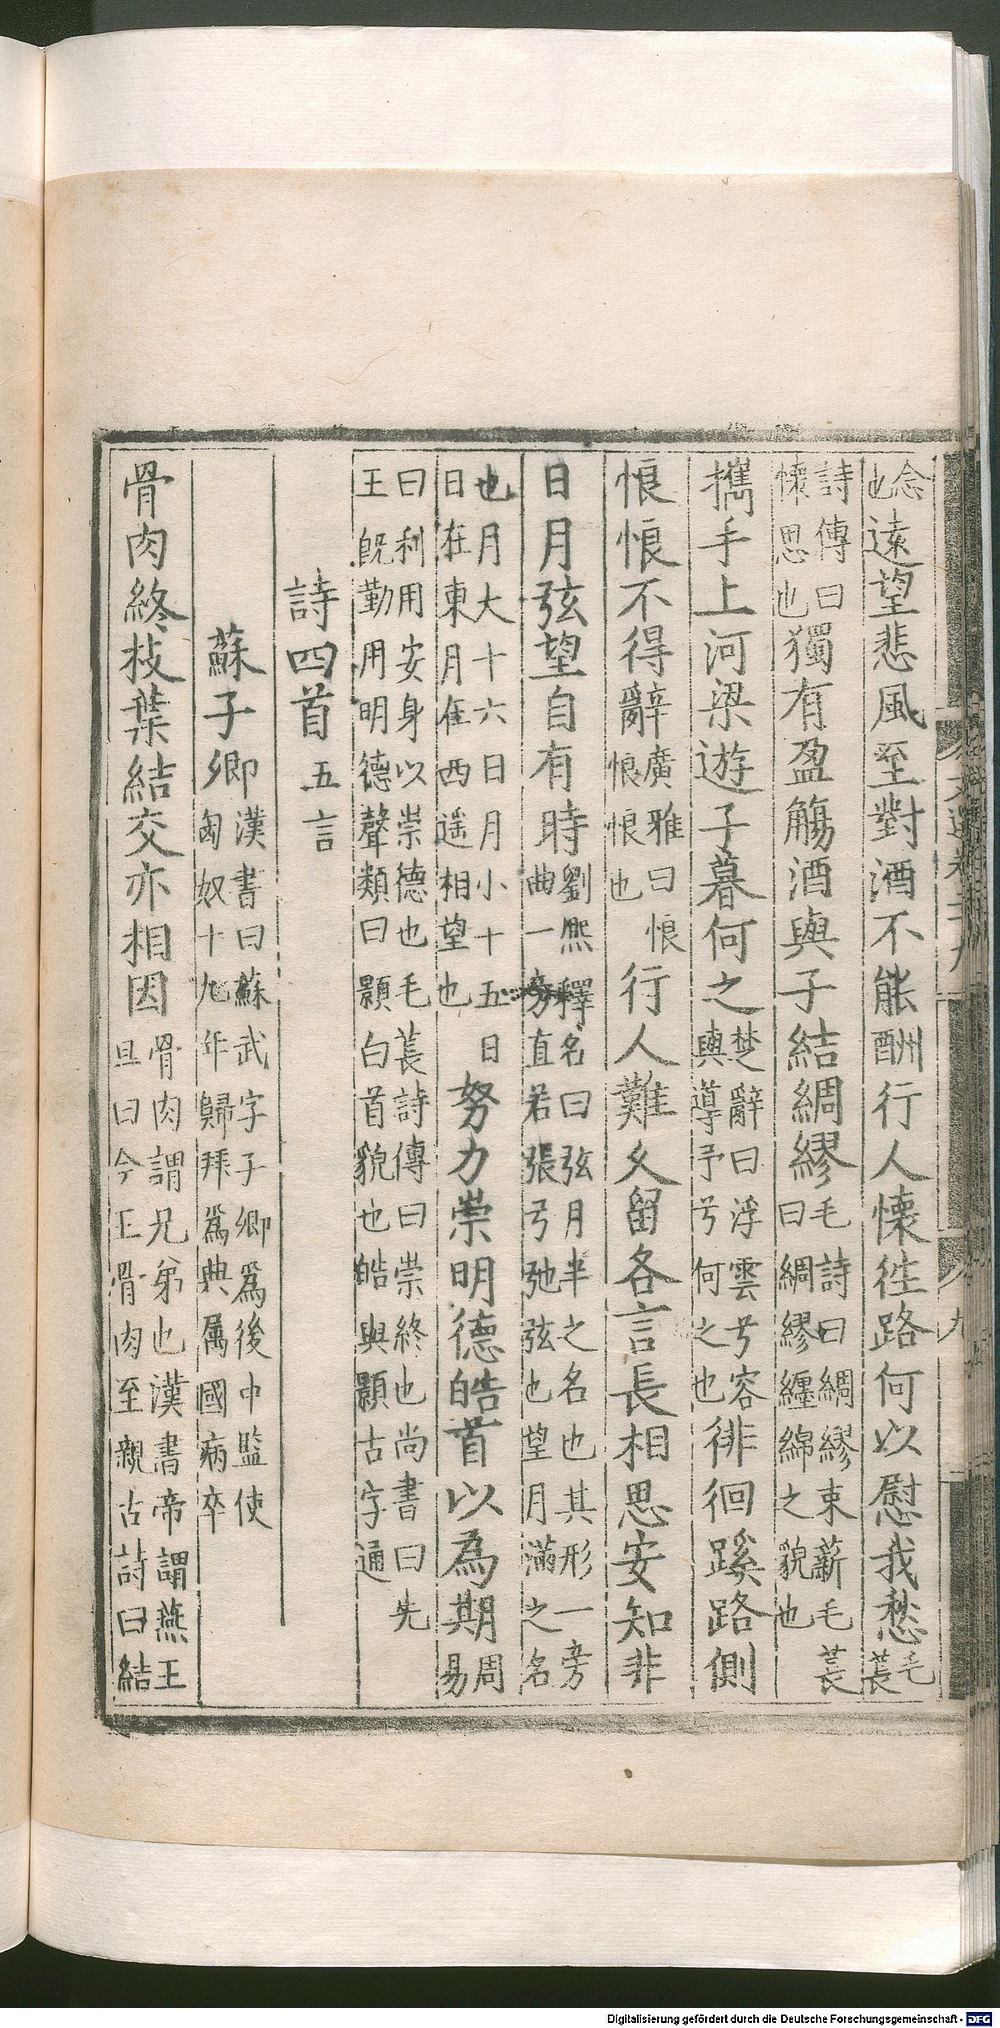 念也遠望悲風至對酒不能酬行人懷往路何以慰我愁毛萇
詩傳曰懷思也獨有盈觴酒與子結綢繆毛詩曰綢繆束薪毛萇曰綢繆纏綿之貌也
攜手上河梁遊子暮何之楚辭曰浮雲兮容與導予兮何之也徘徊蹊路側
悢悢不得辭廣雅曰悢悢悢也行人難久留各言長相思安知非
日月弦望自有時劉熙釋名曰弦月半之名也其形一旁曲一旁直若張弓弛弦也望月滿之名
也月大十六日月小十五日日在東月在西遥相望也努力崇明德皓首以為期周易
曰利用安身以崇德也毛萇詩傳曰崇終也尚書曰先王既勤用明德聲類曰顥白首貌也皓與顥古字通
詩四首五言
蘇子卿漢書曰蘇武字子卿為後中監使匈奴十九年歸拜為典属國病卒
骨肉終枝葉結交亦相因骨肉謂兄弟也漢書帝謂燕王旦曰今王骨肉至親古詩曰結
文選卷二十九
九
Digitalisierung gefördert durch die Deutsche Forschungsgemeinschaft - DFG